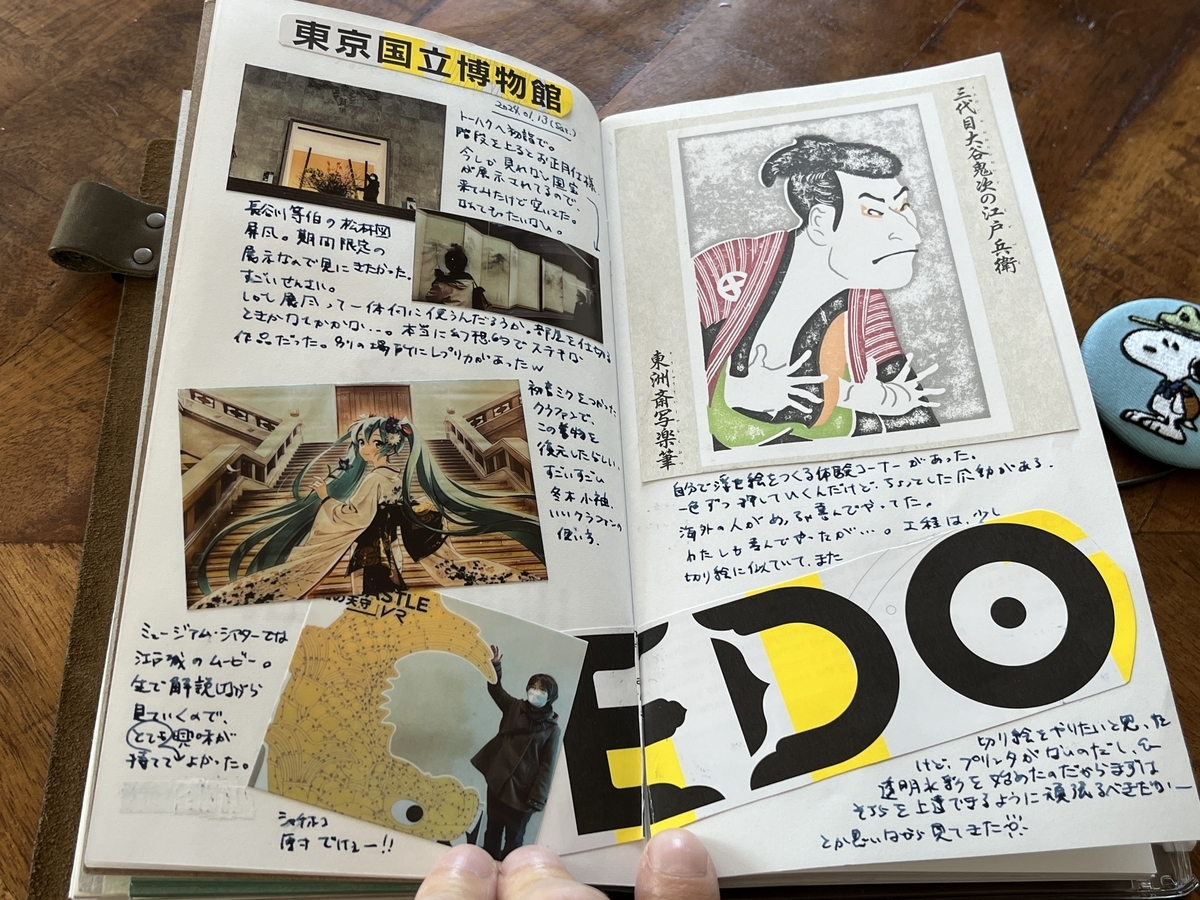 東京国立博物館
2024.01.13(Sat.)
トーハクへ初詣で。
階段を上るとお正月仕様
今しか見れない国宝
が展示されてるので
来てみたけど空いてた。
なんてもったいない。
長谷川等伯の松林図
屏風。期間限定の
展示なので見にきたかった。
すごいせんさい。
しかし屏風って一体何に使うんだろうか。部屋を仕切る
ときかなてかかな…。本当に幻想的でステキな
作品だった。別の場所にレプリカがあったw
初音ミクをつかった
クラファンで、
この着物を
復元したらしい。
すごいすごい
冬木小袖。
いいクラファンの
使い方。
ミュージアム・シアターでは
江戸城のムービー。
生で解説しながら
見ていくので、
とても興味が
持ててよかった。
の天守
シャチホコ
原寸 でけぇー!!
三代目大谷鬼次の江戸兵衛
東洲斎写楽筆
自分で浮世絵をつくる体験コーナーがあった。
一色ずつ押していくんだけど、ちょっとした感動がある。
海外の人がめっちゃ喜んでやってた。
わたしも喜んでやったが…。工程は、少し
切り絵に似ていて、また
EDO
切り絵をやりたいと思った
けど、プリンタがないのだし、
透明水彩を始めたのだからまずは
そちらを上達できるように頑張るべきだがー
とか思いながら見てきた